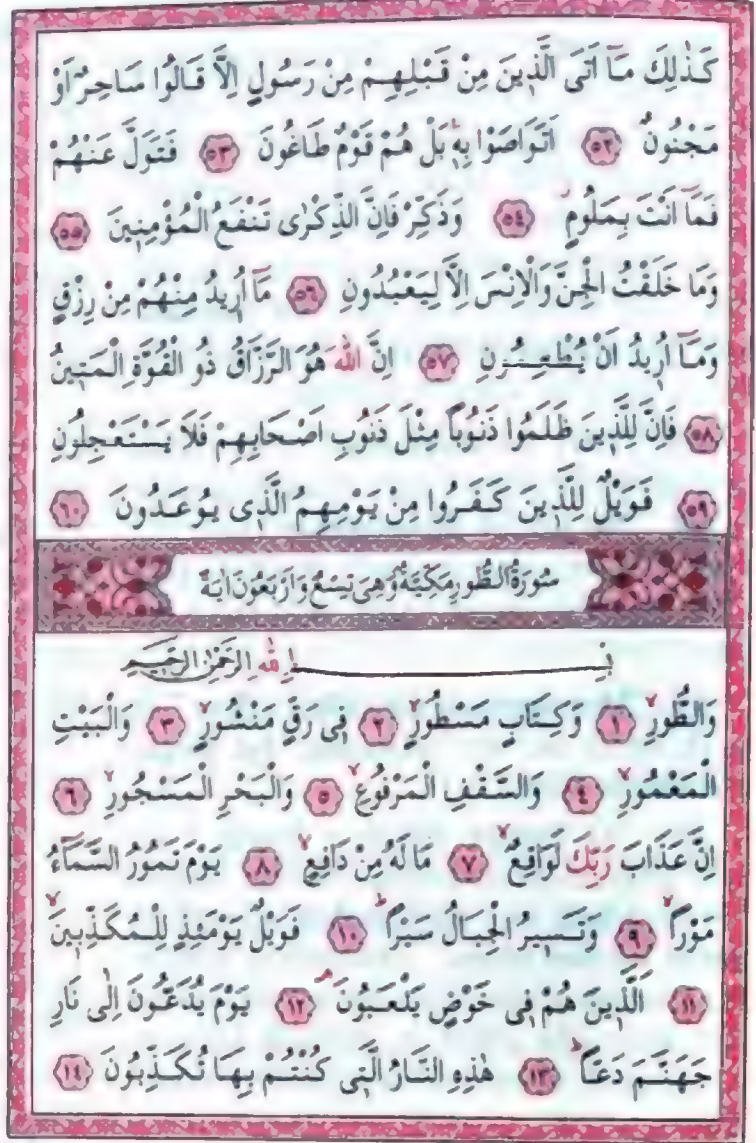 كَذٰلِكَ مَٓا اَتَى الَّذٖينَ مِنْ قَبْلِهِمْ مِنْ رَسُولٍ اِلَّا قَالُوا سَاحِرٌ اَوْ
مَجْنُونٌ ﴿٥٢﴾ اَتَوَاصَوْا بِهٖۚ بَلْ هُمْ قَوْمٌ طَاغُونَ ﴿٥٣﴾ فَتَوَلَّ عَنْهُمْ
فَمَٓا اَنْتَ بِمَلُومٍ ﴿٥٤﴾ وَذَكِّرْ فَاِنَّ الذِّكْرٰى تَنْفَعُ الْمُؤْمِنٖينَ ﴿٥٥﴾
وَمَا خَلَقْتُ الْجِنَّ وَالْاِنْسَ اِلَّا لِيَعْبُدُونِ ﴿٥٦﴾ مَٓا اُرٖيدُ مِنْهُمْ مِنْ رِزْقٍ
وَمَٓا اُرٖيدُ اَنْ يُطْعِمُونِ ﴿٥٧﴾ اِنَّ اللّٰهَ هُوَ الرَّزَّاقُ ذُو الْقُوَّةِ الْمَتٖينُ
﴿٥٨﴾ فَاِنَّ لِلَّذٖينَ ظَلَمُوا ذَنُوباً مِثْلَ ذَنُوبِ اَصْحَابِهِمْ فَلَا يَسْتَعْجِلُونِ
﴿٥٩﴾ فَوَيْلٌ لِلَّذٖينَ كَفَرُوا مِنْ يَوْمِهِمُ الَّذٖى يُوعَدُونَ ﴿٦٠﴾
سُورَةُ الطُّورِ مَكِّيَّةٌ وَهِيَ تِسْعٌ وَاَرْبَعُونَ اٰيَةً
بِسْمِ اللّٰهِ الرَّحْمٰنِ الرَّحٖيمِ
وَالطُّورِۙ ﴿١﴾ وَكِتَابٍ مَسْطُورٍۙ ﴿٢﴾ فٖى رَقٍّ مَنْشُورٍۙ ﴿٣﴾ وَالْبَيْتِ
الْمَعْمُورِۙ ﴿٤﴾ وَالسَّقْفِ الْمَرْفُوعِۙ ﴿٥﴾ وَالْبَحْرِ الْمَسْجُورِۙ ﴿٦﴾
اِنَّ عَذَابَ رَبِّكَ لَوَاقِعٌۙ ﴿٧﴾ مَا لَهُ مِنْ دَافِعٍۙ ﴿٨﴾ يَوْمَ تَمُورُ السَّمَٓاءُ
مَوْراًۙ ﴿٩﴾ وَتَسٖيرُ الْجِبَالُ سَيْراًۜ ﴿١٠﴾ فَوَيْلٌ يَوْمَئِذٍ لِلْمُكَذِّبٖينَۙ
﴿١١﴾ اَلَّذٖينَ هُمْ فٖى خَوْضٍ يَلْعَبُونَۢ ﴿١٢﴾ يَوْمَ يُدَعُّونَ اِلٰى نَارِ
جَهَنَّمَ دَعاًّۜ ﴿١٣﴾ هٰذِهِ النَّارُ الَّتٖى كُنْتُمْ بِهَا تُكَذِّبُونَ ﴿١٤﴾